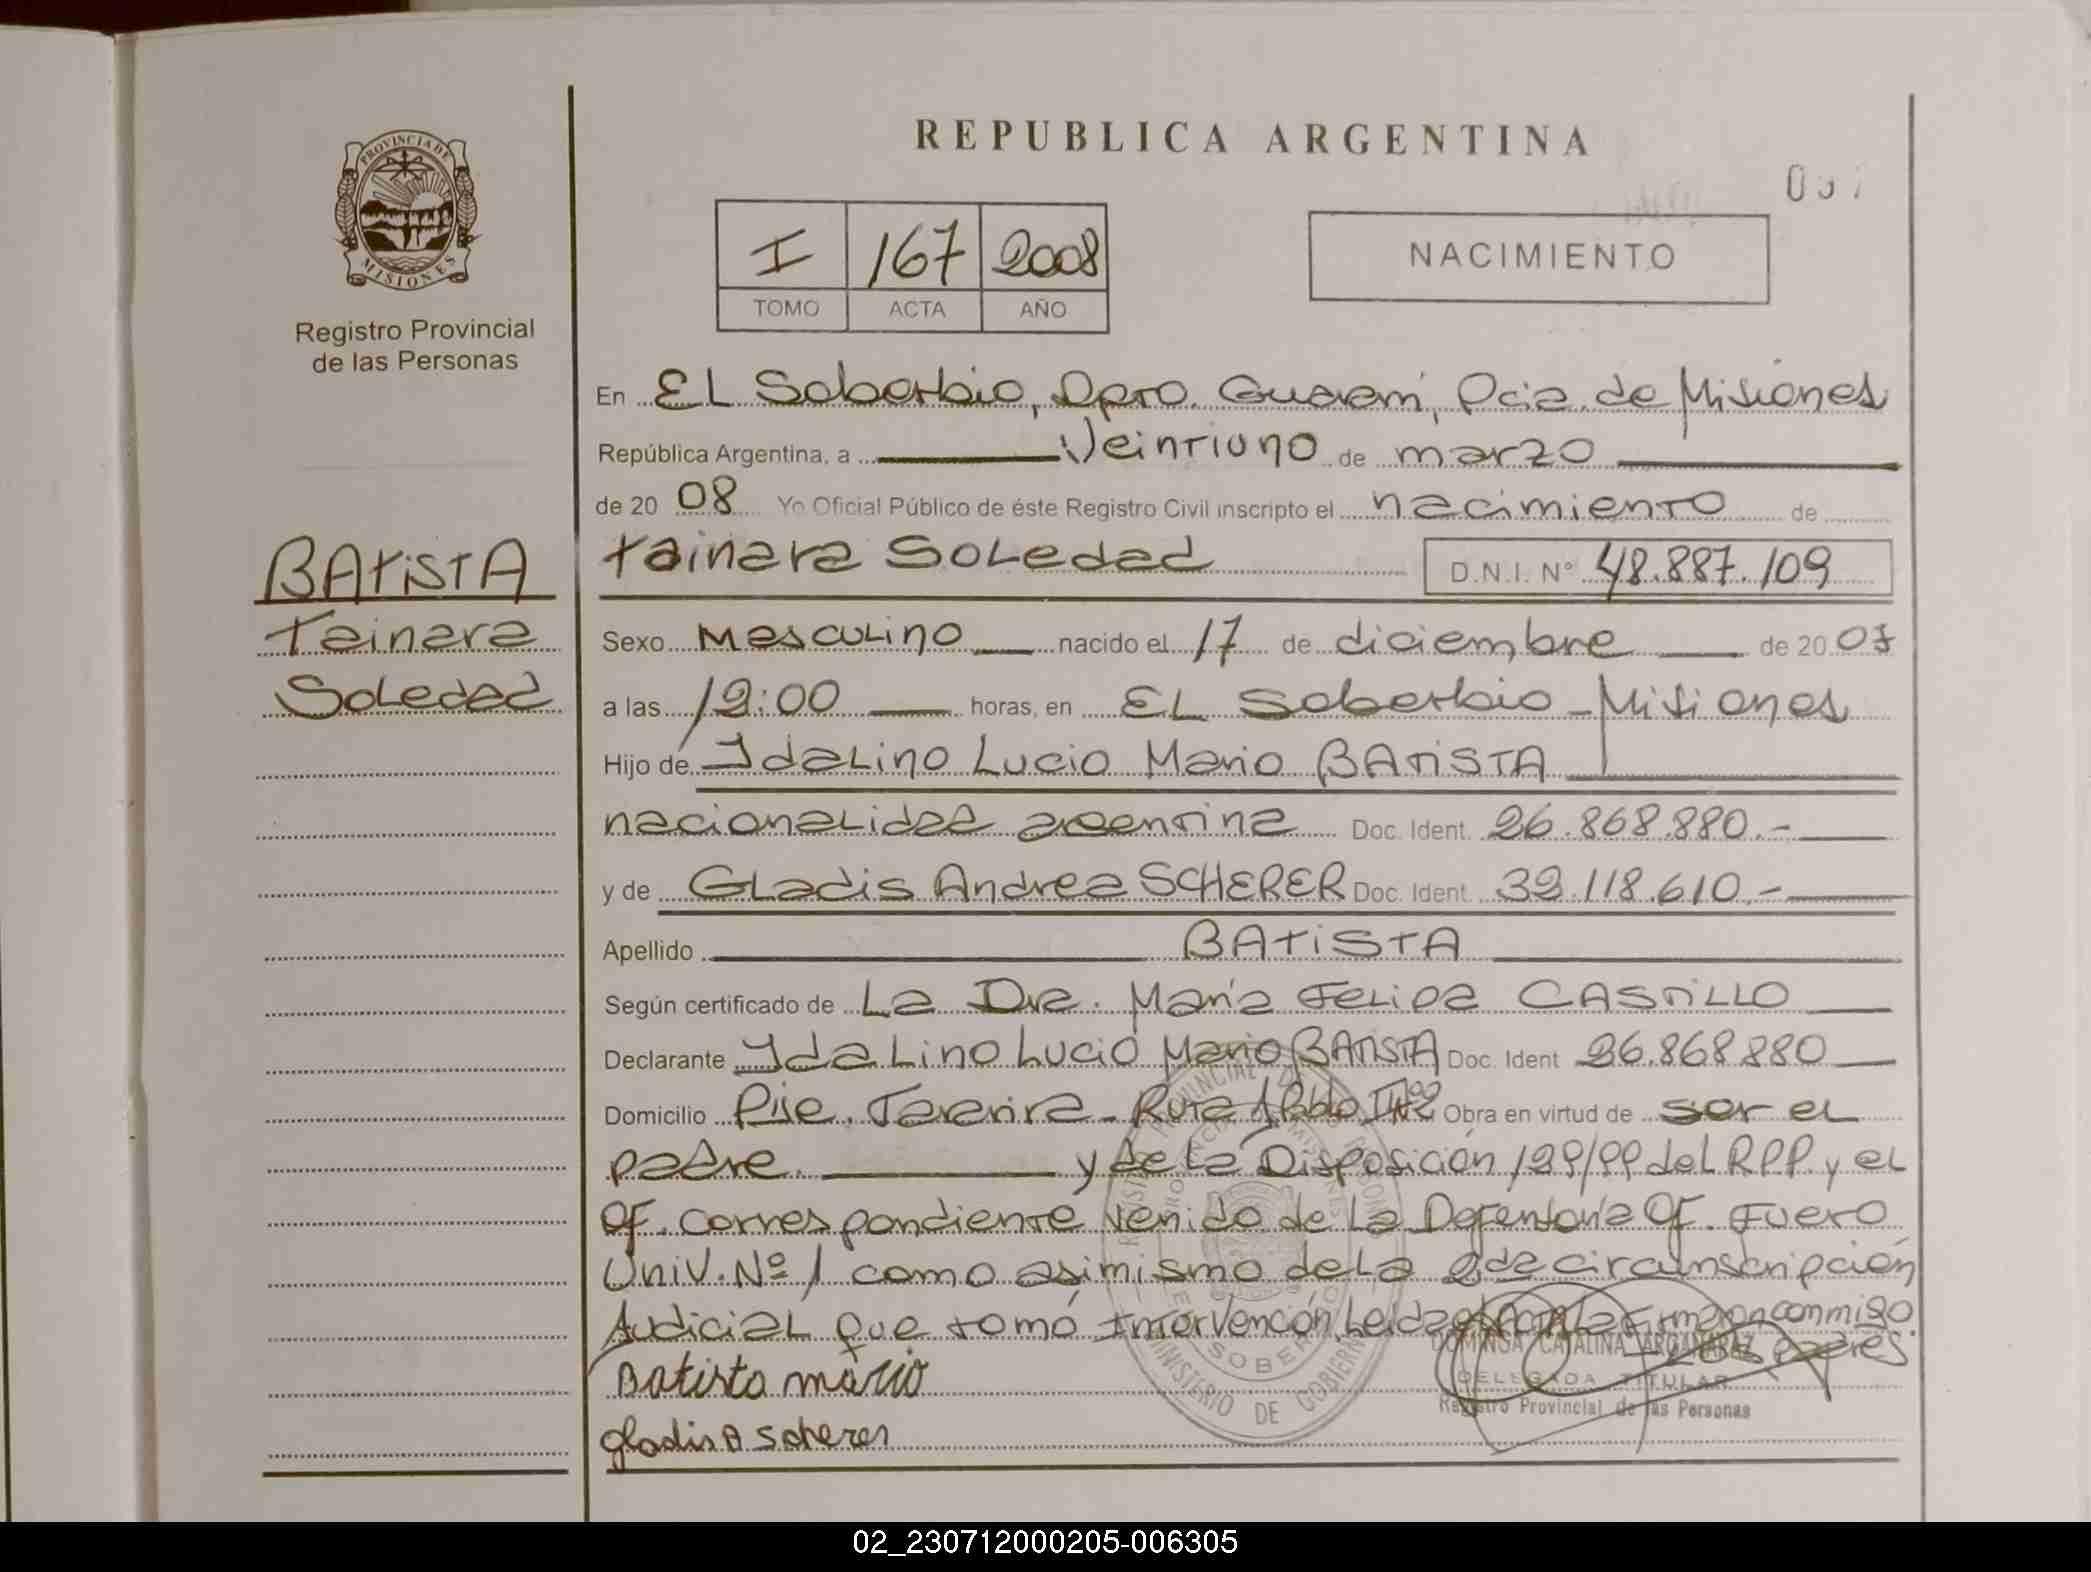 REPUBLICA ARGENTINA
PROVINCIA DE MISIONES
Registro Provincial
de las Personas
I 167 2008
TOMO ACTA AÑO
NACIMIENTO
BATISTA
Tainara
Soledad
En EL Soberbio, Dpto. Guaraní, Pcia. de Misiones
República Argentina, a Veintiuno de marzo
de 20 08 Yo Oficial Público de éste Registro Civil inscripto el nacimiento de
Tainara Soledad D.N.I. N° 48.887.109
Sexo Masculino nacido el 17 de diciembre de 20 07
a las 12:00 horas, en EL Soberbio - Misiones
Hijo de Idalino Lucio Mario BATISTA
nacionalidad argentina Doc. Ident. 26.868.880.-
y de Gladis Andrea SCHERER Doc. Ident. 39.118.610.-
Apellido BATISTA
Según certificado de La Dra. María Felipa CASTILLO
Declarante Idalino Lucio Mario BATISTA Doc. Ident 26.868.880
Domicilio Pje. Tararira - Ruta Obra en virtud de ser el
padre. y de la Disposición 129/99 del RPP. y el
Of. correspondiente venido de la Defensoría Of. Fuero
Univ. Nº 1 como asimismo de la 2da circunscripción
Judicial que tomó Intervención. Leida el acta la firman conmigo
los padres
Batista mario
gladis A scherer
DOMINGA CATALINA ARGAÑARAZ
DELEGADA TITULAR
Registro Provincial de las Personas
MINISTERIO DE GOBIERNO
02_230712000205-006305